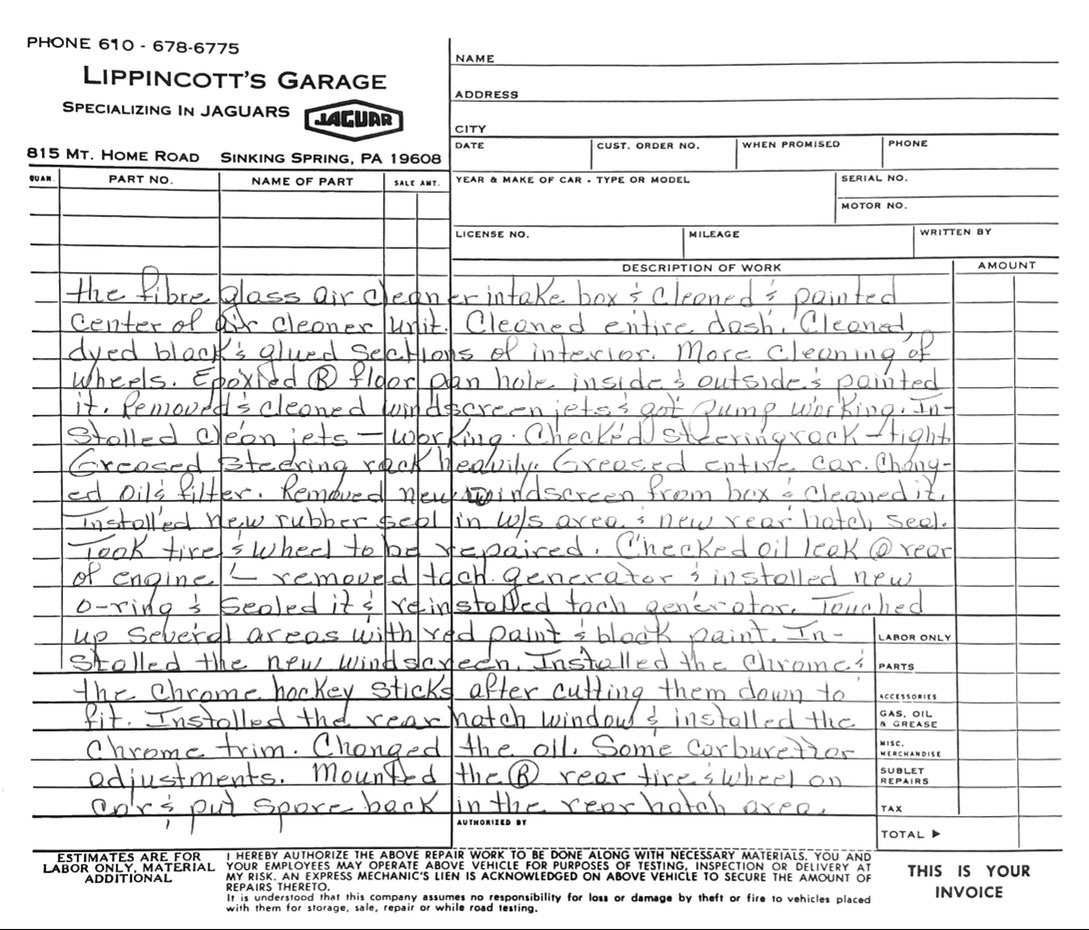 PHONE 610 - 678-6775
LIPPINCOTT'S GARAGE
SPECIALIZING IN JAGUARS JAGUAR
815 MT. HOME ROAD SINKING SPRING, PA 19608
NAME
ADDRESS
CITY
DATE CUST. ORDER NO. WHEN PROMISED PHONE
QUAN. PART NO. NAME OF PART SALE AMT.
YEAR & MAKE OF CAR - TYPE OR MODEL SERIAL NO.
MOTOR NO.
LICENSE NO. MILEAGE WRITTEN BY
DESCRIPTION OF WORK AMOUNT
the fibre glass air cleaner intake box & cleaned & painted
center of air cleaner unit. Cleaned entire dash. Cleaned,
dyed black & glued sections of interior. More cleaning of
wheels. Epoxied Ⓡ floor pan hole inside & outside & painted
it. Removed & cleaned windscreen jets & got pump working. In-
stalled clean jets — working. Checked steering rack — tight
Greased steering rack heavily. Greased entire car. Chang-
ed oil & filter. Removed new windscreen from box & cleaned it.
Installed new rubber seal in w/s area & new rear hatch seal.
Took tire & wheel to be repaired. Checked oil leak @ rear
of engine — removed tach. generator & installed new
o-ring & sealed it & reinstalled tach generator. Touched
up several areas with red paint & black paint. In-
stalled the new windscreen. Installed the chrome &
the chrome hockey sticks after cutting them down to
fit. Installed the rear hatch window & installed the
chrome trim. Changed the oil. Some carburettor
adjustments. Mounted the Ⓡ rear tire & wheel on
car & put spare back in the rear hatch area.
LABOR ONLY
PARTS
ACCESSORIES
GAS, OIL & GREASE
MISC. MERCHANDISE
SUBLET REPAIRS
TAX
AUTHORIZED BY
TOTAL ▶
ESTIMATES ARE FOR
LABOR ONLY, MATERIAL
ADDITIONAL
I HEREBY AUTHORIZE THE ABOVE REPAIR WORK TO BE DONE ALONG WITH NECESSARY MATERIALS. YOU AND
YOUR EMPLOYEES MAY OPERATE ABOVE VEHICLE FOR PURPOSES OF TESTING, INSPECTION OR DELIVERY AT
MY RISK. AN EXPRESS MECHANIC'S LIEN IS ACKNOWLEDGED ON ABOVE VEHICLE TO SECURE THE AMOUNT OF
REPAIRS THERETO.
It is understood that this company assumes no responsibility for loss or damage by theft or fire to vehicles placed
with them for storage, sale, repair or while road testing.
THIS IS YOUR
INVOICE